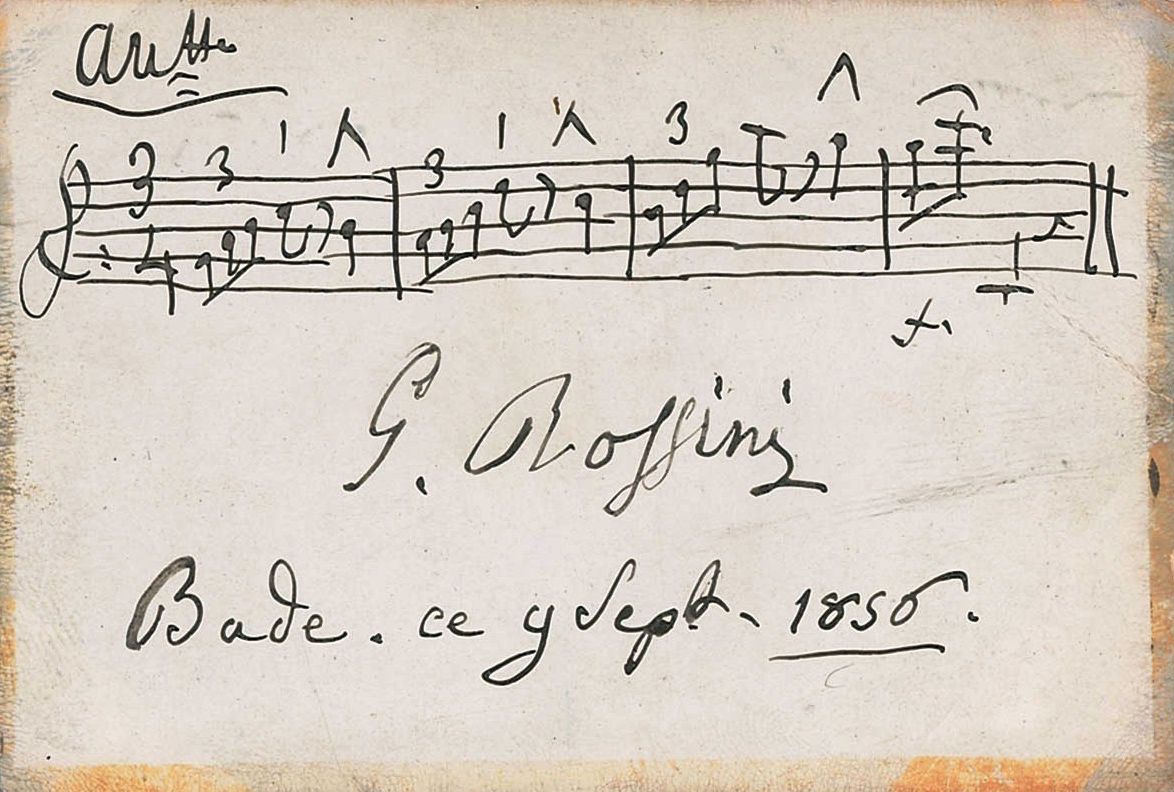 3 1 3 1 3
G. Rossini
Bade. ce 9 Sept. 1856.